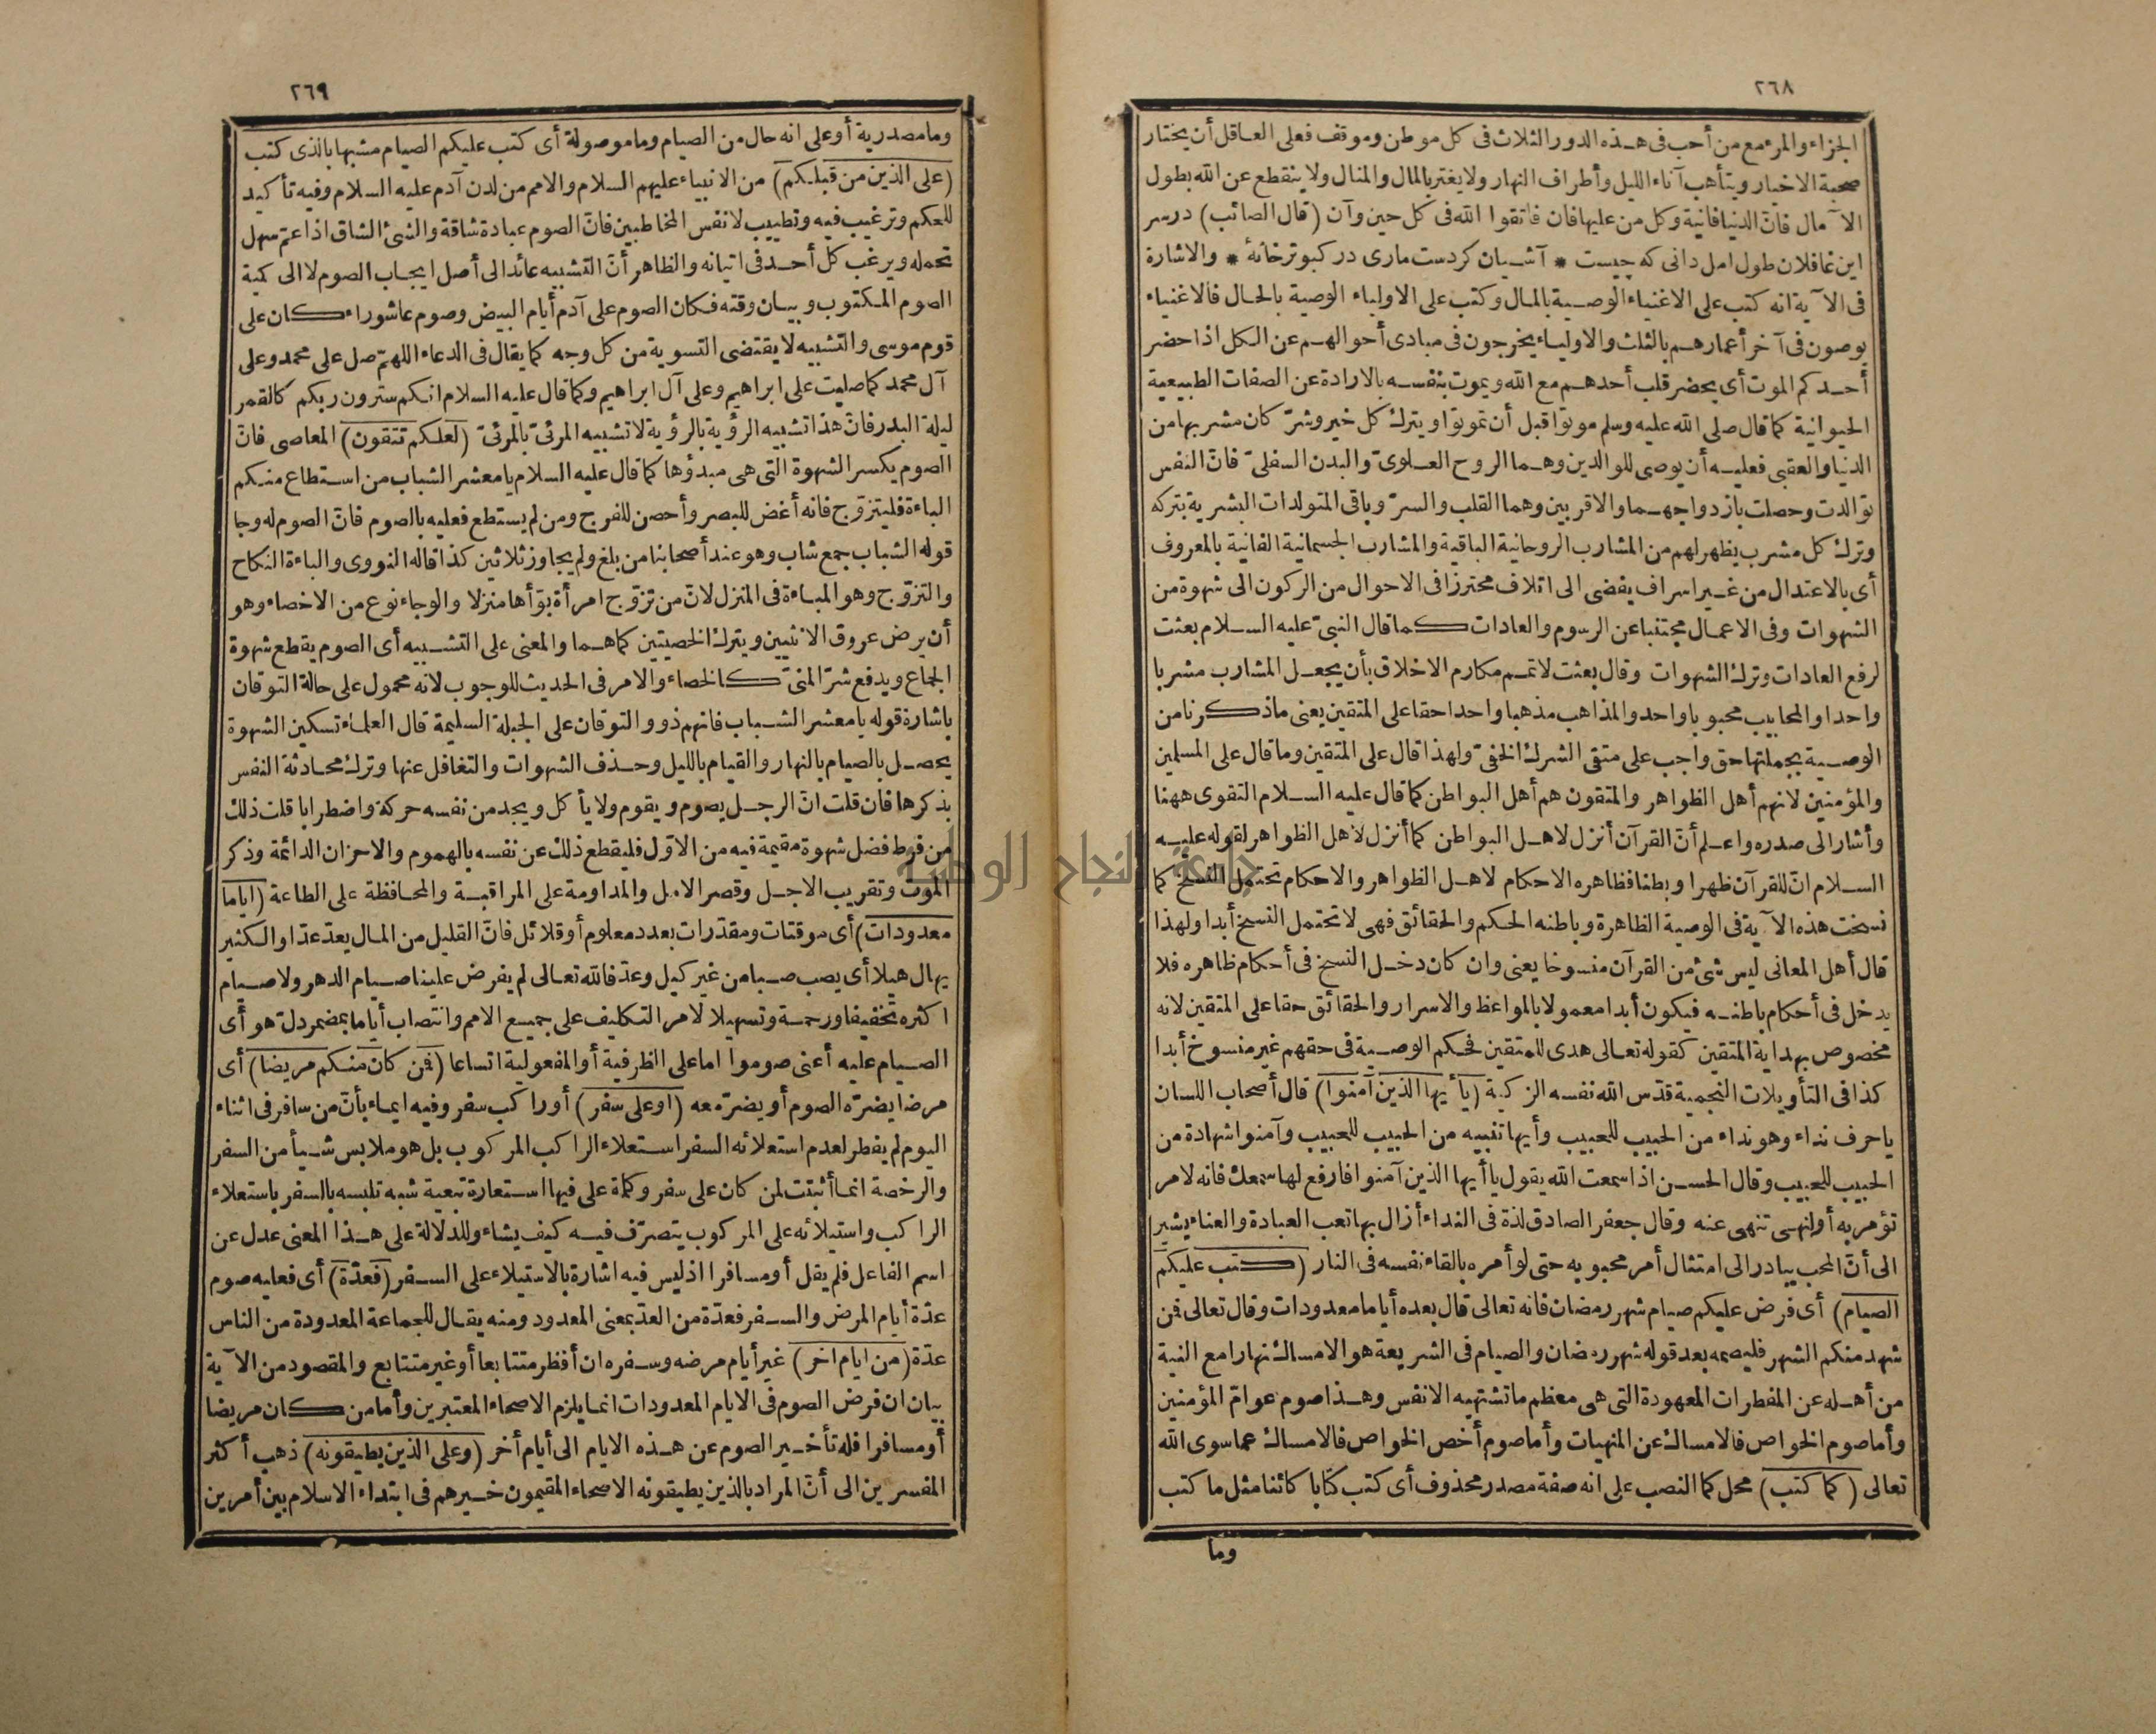 ٢٦٨
الجزاء والمرء مع من أحب فى هذه الدور الثلاث فى كل موطن وموقف فعلى العاقل أن يختار
صحبة الاخيار ويتأهب آناء الليل وأطراف النهار ولا يغتر بالمال والمنال ولا ينقطع عن الله بطول
الآمال فانّ الدنيا فانية وكل من عليها فان فاتقوا الله فى كل حين وآن (قال الصائب) درسر
اين غافلان طول امل دانى كه چيست * آشيان كردست مارى در كبوتر خانهٔ * والاشارة
فى الآية انه كتب على الاغنياء الوصية بالمال وكتب على الاولياء الوصية بالحال فالاغنياء
يوصون فى آخر أعمارهم بالثلث والاولياء يخرجون فى مبادى أحوالهم عن الكل اذا حضر
أحدكم الموت أى يحضر قلب أحدهم مع الله ويموت بنفسه بالارادة عن الصفات الطبيعية
الحيوانية كما قال صلى الله عليه وسلم موتوا قبل أن تموتوا ويترك كل خير وشرّ كان مشربها من
الدنيا والعقبى فعليه أن يوصى للوالدين وهما الروح العلوىّ والبدن السفلىّ فانّ النفس
توالدت وحصلت بازدواجهما والاقربين وهما القلب والسرّ وباقى المتولدات البشرية بتركه
وترك كل مشرب يظهر لهم من المشارب الروحانية الباقية والمشارب الجسمانية الفانية بالمعروف
أى بالاعتدال من غير اسراف يفضى الى اتلاف محترزا فى الاحوال من الركون الى شهوة من
الشهوات وفى الاعمال مجتنبا عن الرسوم والعادات كما قال النبىّ عليه السلام بعثت
لرفع العادات وترك الشهوات وقال بعثت لاتمم مكارم الاخلاق بأن يجعل المشارب مشربا
واحدا والمحابيب محبوبا واحد والمذاهب مذهبا واحدا حقا على المتقين يعنى ما ذكرنا من
الوصية بجملتها حق واجب على متقى الشرك الخفىّ ولهذا قال على المتقين وما قال على المسلمين
والمؤمنين لانهم أهل الظواهر والمتقون هم أهل البواطن كما قال عليه السلام التقوى ههنا
وأشار الى صدره واعلم أنّ القرآن أنزل لاهل البواطن كما أنزل لاهل الظواهر لقوله عليه
السلام انّ للقرآن ظهرا وبطنا فظاهره الاحكام لاهل الظواهر والاحكام تحتمل النسخ كما
نسخت هذه الآية فى الوصية الظاهرة وباطنه الحكم والحقائق فهى لا تحتمل النسخ أبدا ولهذا
قال أهل المعانى ليس شئ من القرآن منسوخا يعنى وان كان دخل النسخ فى أحكام ظاهره فلا
يدخل فى أحكام باطنه فيكون أبدا معمولا بالمواعظ والاسرار والحقائق حقا على المتقين لانه
مخصوص بهداية المتقين كقوله تعالى هدى للمتقين فحكم الوصية فى حقهم غير منسوخ أبدا
كذا فى التأويلات النجمية قدّس الله نفسه الزكية (يأيها الذين آمنوا) قال أصحاب اللسان
يا حرف نداء وهو نداء من الحبيب للحبيب وأيها تنبيه من الحبيب للحبيب وآمنوا شهادة من
الحبيب للحبيب وقال الحسن اذا سمعت الله يقول يا أيها الذين آمنوا فارفع لها سمعك فانه لامر
تؤمر به أو لنهى تنهى عنه وقال جعفر الصادق لذة فى النداء أزال بها تعب العبادة والعناء يشير
الى أنّ المحب يبادر الى امتثال أمر محبوبه حتى لو أمره بالقاء نفسه فى النار (كتب عليكم
الصيام) أى فرض عليكم صيام شهر رمضان فانه تعالى قال بعده أياما معدودات وقال تعالى فمن
شهد منكم الشهر فليصمه بعد قوله شهر رمضان والصيام فى الشريعة هو الامساك نهارا مع النية
من أهله عن المفطرات المعهودة التى هى معظم ما تشتهيه الانفس وهذا صوم عوامّ المؤمنين
وأما صوم الخواص فالامساك عن المنهيات وأما صوم أخص الخواص فالامساك عما سوى الله
تعالى (كما كتب) محل كما النصب على انه صفة مصدر محذوف أى كتب كتابا كائنا مثل ما كتب
وما
٢٦٩
وما مصدرية أو على انه حال من الصيام وما موصولة أى كتب عليكم الصيام مشبها بالذى كتب
(على الذين من قبلكم) من الانبياء عليهم السلام والامم من لدن آدم عليه السلام وفيه تأكيد
للحكم وترغيب فيه وتطييب لانفس المخاطبين فانّ الصوم عبادة شاقة والشئ الشاق اذا عمّ سهل
تحمله ويرغب كل أحد فى اتيانه والظاهر أنّ التشبيه عائد الى أصل ايجاب الصوم لا الى كمية
الصوم المكتوب وبيان وقته فكان الصوم على آدم أيام البيض وصوم عاشوراء كان على
قوم موسى والتشبيه لا يقتضى التسوية من كل وجه كما يقال فى الدعاء اللهمّ صل على محمد وعلى
آل محمد كما صليت على ابراهيم وعلى آل ابراهيم وكما قال عليه السلام انكم سترون ربكم كالقمر
ليلة البدر فانّ هذا تشبيه الرؤية بالرؤية لا تشبيه المرئىّ بالمرئىّ (لعلكم تتقون) المعاصى فانّ
الصوم يكسر الشهوة التى هى مبدؤها كما قال عليه السلام يا معشر الشباب من استطاع منكم
الباءة فليتزوّج فانه أغض للبصر وأحصن للفرج ومن لم يستطع فعليه بالصوم فانّ الصوم له وجا
قوله الشباب جمع شاب وهو عند أصحابنا من بلغ ولم يجاوز ثلاثين كذا قاله النووى والباءة النكاح
والتزوّج وهو المباءة فى المنزل لانّ من تزوّج امرأة بوّأها منزلا والوجاء نوع من الاخصاء وهو
أن يرض عروق الانثيين ويترك الخصيتين كما هما والمعنى على التشبيه أى الصوم يقطع شهوة
الجماع ويدفع شرّ المنىّ كالخصاء والامر فى الحديث للوجوب لانه محمول على حالة التوقان
باشارة قوله يا معشر الشباب فانهم ذوو التوقان على الجبلة السليمة قال العلماء تسكين الشهوة
يحصل بالصيام بالنهار والقيام بالليل وحذف الشهوات والتغافل عنها وترك محادثة النفس
بذكرها فان قلت انّ الرجل يصوم ويقوم ولا يأكل ويجد من نفسه حركة واضطرابا قلت ذلك
من فرط فضل شهوة مقيمة فيه من الاوّل فليقطع ذلك عن نفسه بالهموم والاحزان الدائمة وذكر
الموت وتقريب الاجل وقصر الامل والمداومة على المراقبة والمحافظة على الطاعة (أياما
معدودات) أى موقتات ومقدّرات بعدد معلوم أو قلائل فانّ القليل من المال يعدّ عدّا والكثير
يهال هيلا أى يصب صبا من غير كيل وعدّ فالله تعالى لم يفرض علينا صيام الدهر ولا صيام
أكثره تخفيفا ورحمة وتسهيلا لامر التكليف على جميع الامم وانتصاب أياما بمضمر دلّ هو أى
الصيام عليه أعنى صوموا اما على الظرفية أو المفعولية اتساعا (فمن كان منكم مريضا) أى
مرضا يضرّه الصوم أو يضرّ معه (أو على سفر) أو راكب سفر وفيه ايماء بأنّ من سافر فى اثناء
اليوم لم يفطر لعدم استعلائه السفر استعلاء الراكب المركوب بل هو ملابس شيأ من السفر
والرخصة انما أثبتت لمن كان على سفر وكلمة على فيها استعارة تبعية شبه تلبسه بالسفر باستعلاء
الراكب واستيلائه على المركوب يتصرّف فيه كيف يشاء وللدلالة على هذا المعنى عدل عن
اسم الفاعل فلم يقل أو مسافرا اذ ليس فيه اشارة بالاستيلاء على السفر (فعدّة) أى فعليه صوم
عدّة أيام المرض والسفر فعدّة من العدّ بمعنى المعدود ومنه يقال للجماعة المعدودة من الناس
عدّة (من أيام أخر) غير أيام مرضه وسفره ان أفطر متتابعا أو غير متتابع والمقصود من الآية
بيان ان فرض الصوم فى الايام المعدودات انما يلزم الاصحاء المعتبرين وأما من كان مريضا
أو مسافرا فله تأخير الصوم عن هذه الايام الى أيام أخر (وعلى الذين يطيقونه) ذهب أكثر
المفسرين الى أنّ المراد بالذين يطيقونه الاصحاء المقيمون خيرهم فى ابتداء الاسلام بين أمرين
جامعة النجاح الوطنية